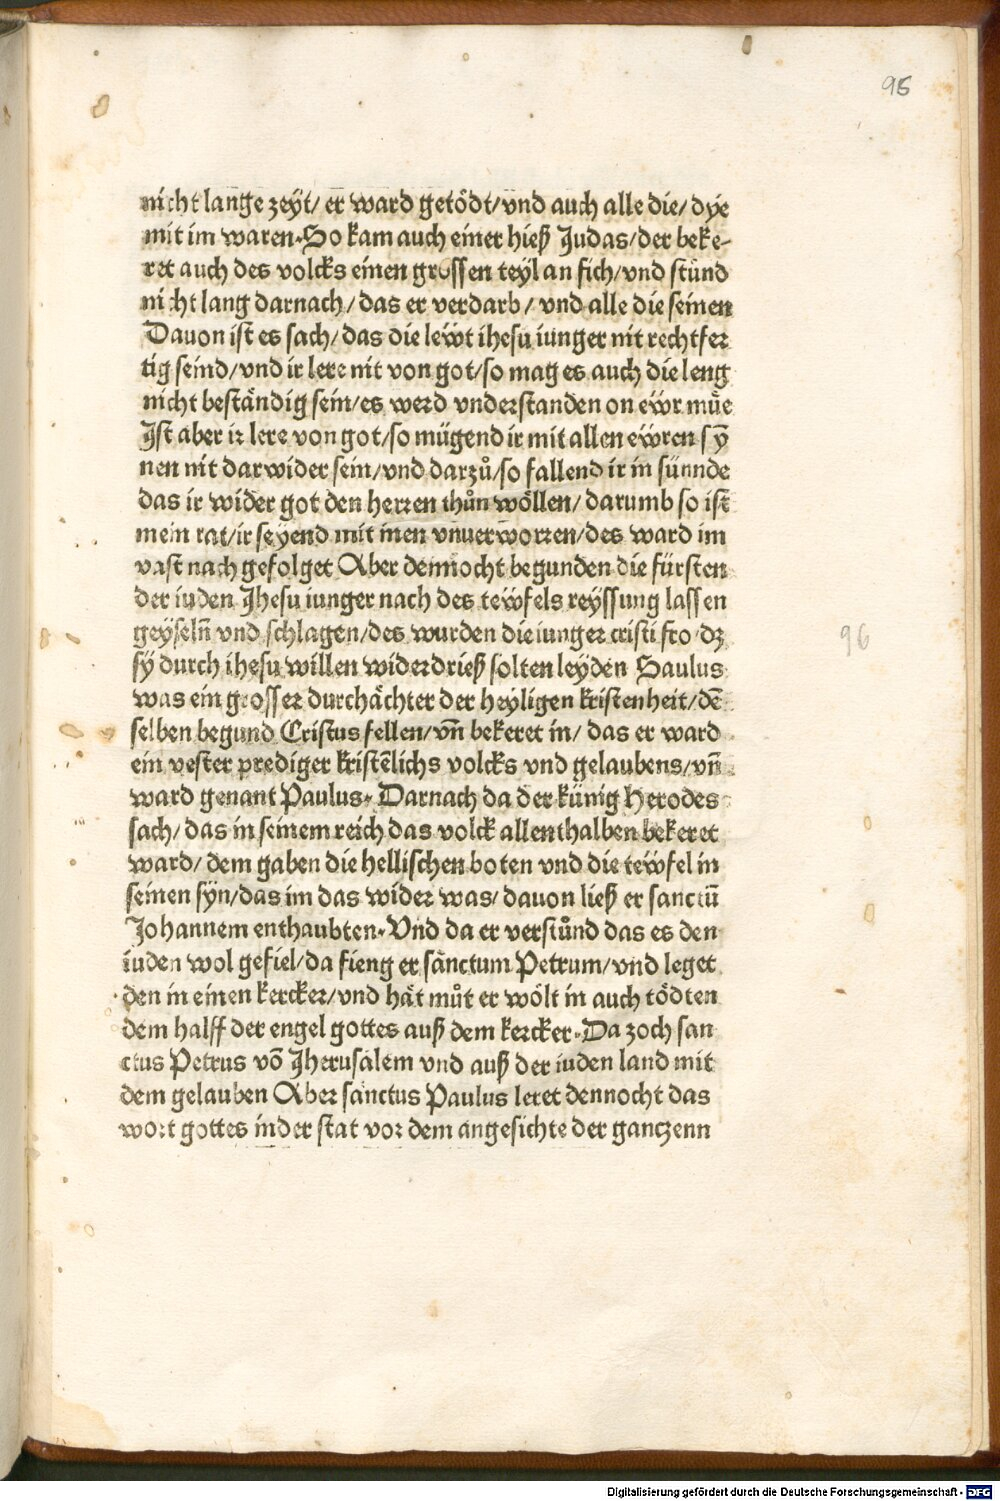 96
nicht lange zeÿt/ er ward getödt/vnd auch alle die/ dÿe
mit im waren. So kam auch einer hieß Judas/der beke-
ret auch des volcks einen grossen teÿl an sich/vnd stůnd
nicht lang darnach/das er verdarb/ vnd alle die seinen
Dauon ist es sach/das die lewt ihesu iunger nit rechtfer
tig seind/vnd ir lere nit von got/so mag es auch die leng
nicht beständig sein/es werd vnderstanden on ewr müe
Jst aber ir lere von got/so mügend ir mit allen ewren sÿ
nen nit darwider sein/vnd darzů/so fallend ir in sünnde
das ir wider got den herren thůn wöllen/ darumb so ist
mein rat/ir seÿend mit inen vnuerworren/des ward im
vast nach gefolget Aber dennocht begunden die fürsten
der iuden Jhesu iunger nach des tewfels reÿssung lassen
geÿseln̄ vnd schlagen/des wurden die iunger cristi fro dz
sÿ durch ihesu willen widerdrieß solten leÿden Saulus
was ein grosser durchächter der heÿligen kristenheit/dē
selben begund Cristus fellen/vn̄ bekeret in/ das er ward
ein vester prediger kristēlichs volcks vnd gelaubens/vn̄
ward genant Paulus. Darnach da der künig Herodes
sach/das in seinem reich das volck allenthalben bekeret
ward/ dem gaben die hellischen boten vnd die tewfel in
seinen sÿn/das im das wider was/ dauon ließ er sanctū
Johannem enthaubten. Vnd da er verstůnd das es den
iuden wol gefiel/da fieng er sanctum Petrum/vnd leget
den in einen kercker/vnd hät můt er wölt in auch tödten
dem halff der engel gottes auß dem kercker. Da zoch san
ctus Petrus vō Jherusalem vnd auß der iuden land mit
dem gelauben Aber sanctus Paulus leret dennocht das
wort gottes in der stat vor dem angesichte der ganczenn
96
Digitalisierung gefördert durch die Deutsche Forschungsgemeinschaft - DFG